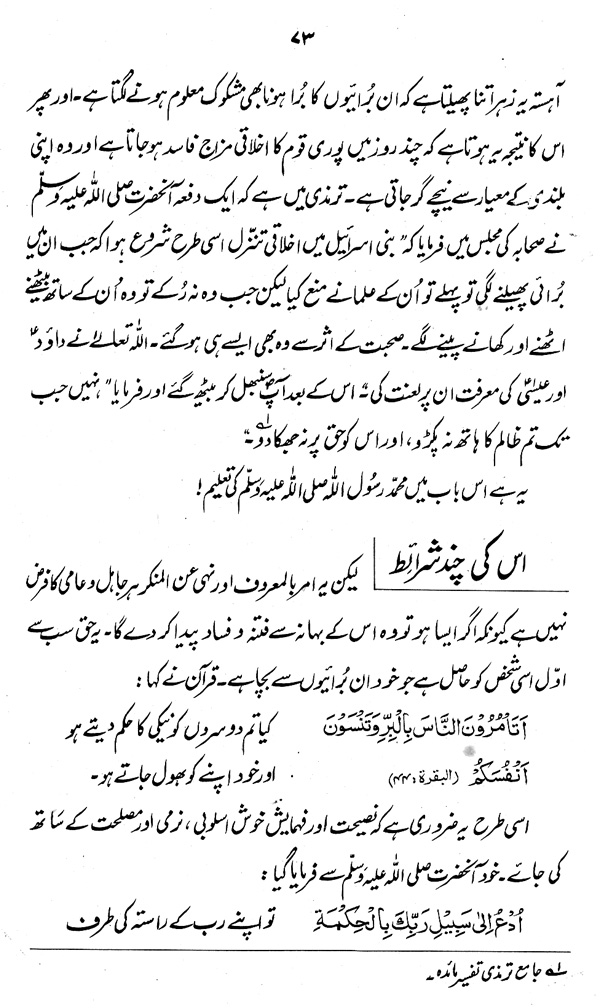 ۷۳
آہستہ یہ زہر اتنا پھیلتا ہے کہ ان بُرائیوں کا بُرا ہونا بھی مشکوک معلوم ہونے لگتا ہے۔ اور پھر
اس کا نتیجہ یہ ہوتا ہے کہ چند روز میں پوری قوم کا اخلاقی مزاج فاسد ہو جاتا ہے اور وہ اپنی
بلندی کے معیار سے نیچے گر جاتی ہے۔ ترمذی میں ہے کہ ایک دفعہ آنحضرت صلی اللہ علیہ وسلّم
نے صحابہ کی مجلس میں فرمایا کہ ”بنی اسرائیل میں اخلاقی تنزّل اسی طرح شروع ہوا کہ جب ان میں
بُرائی پھیلنے لگی تو پہلے تو اُن کے علما نے منع کیا لیکن جب وہ نہ رُکے تو وہ اُن کے ساتھ بیٹھنے
اٹھنے اور کھانے پینے لگے۔ صحبت کے اثر سے وہ بھی ایسے ہی ہو گئے۔ اللہ تعالےٰ نے داؤدؑ
اور عیسٰیؑ کی معرفت ان پر لعنت کی۔“ اس کے بعد آپؐ سنبھل کر بیٹھ گئے اور فرمایا ”نہیں جب
تک تم ظالم کا ہاتھ نہ پکڑو، اور اس کو حق پر نہ جھکا دو۔“ لہ
یہ ہے اس باب میں محمّد رسُول اللہ صلی اللہ علیہ وسلّم کی تعلیم!
اس کی چند شرائط
لیکن یہ امر بالمعروف اور نہی عن المنکر ہر جاہل و عامی کا فرض
نہیں ہے کیونکہ اگر ایسا ہو تو وہ اس کے بہانہ سے فتنہ و فساد پیدا کر دے گا۔ یہ حق سب سے
اوّل اسی شخص کو حاصل ہے جو خود ان بُرائیوں سے بچا ہے۔ قرآن نے کہا:
اَتَاْمُرُوْنَ النَّاسَ بِالْبِرِّ وَتَنْسَوْنَ کیا تم دوسروں کو نیکی کا حکم دیتے ہو
اَنْفُسَكُمْ (البقرة:۴۴) اور خود اپنے کو بھول جاتے ہو۔
اسی طرح یہ ضروری ہے کہ نصیحت اور فہمایش خوش اسلوبی، نرمی اور مصلحت کے ساتھ
کی جائے۔ خود آنحضرت صلی اللہ علیہ وسلّم سے فرمایا گیا:
اُدْعُ اِلٰی سَبِيْلِ رَبِّكَ بِالْحِكْمَةِ تو اپنے رب کے راستہ کی طرف
لہ جامع ترمذی تفسیر مائدہ۔